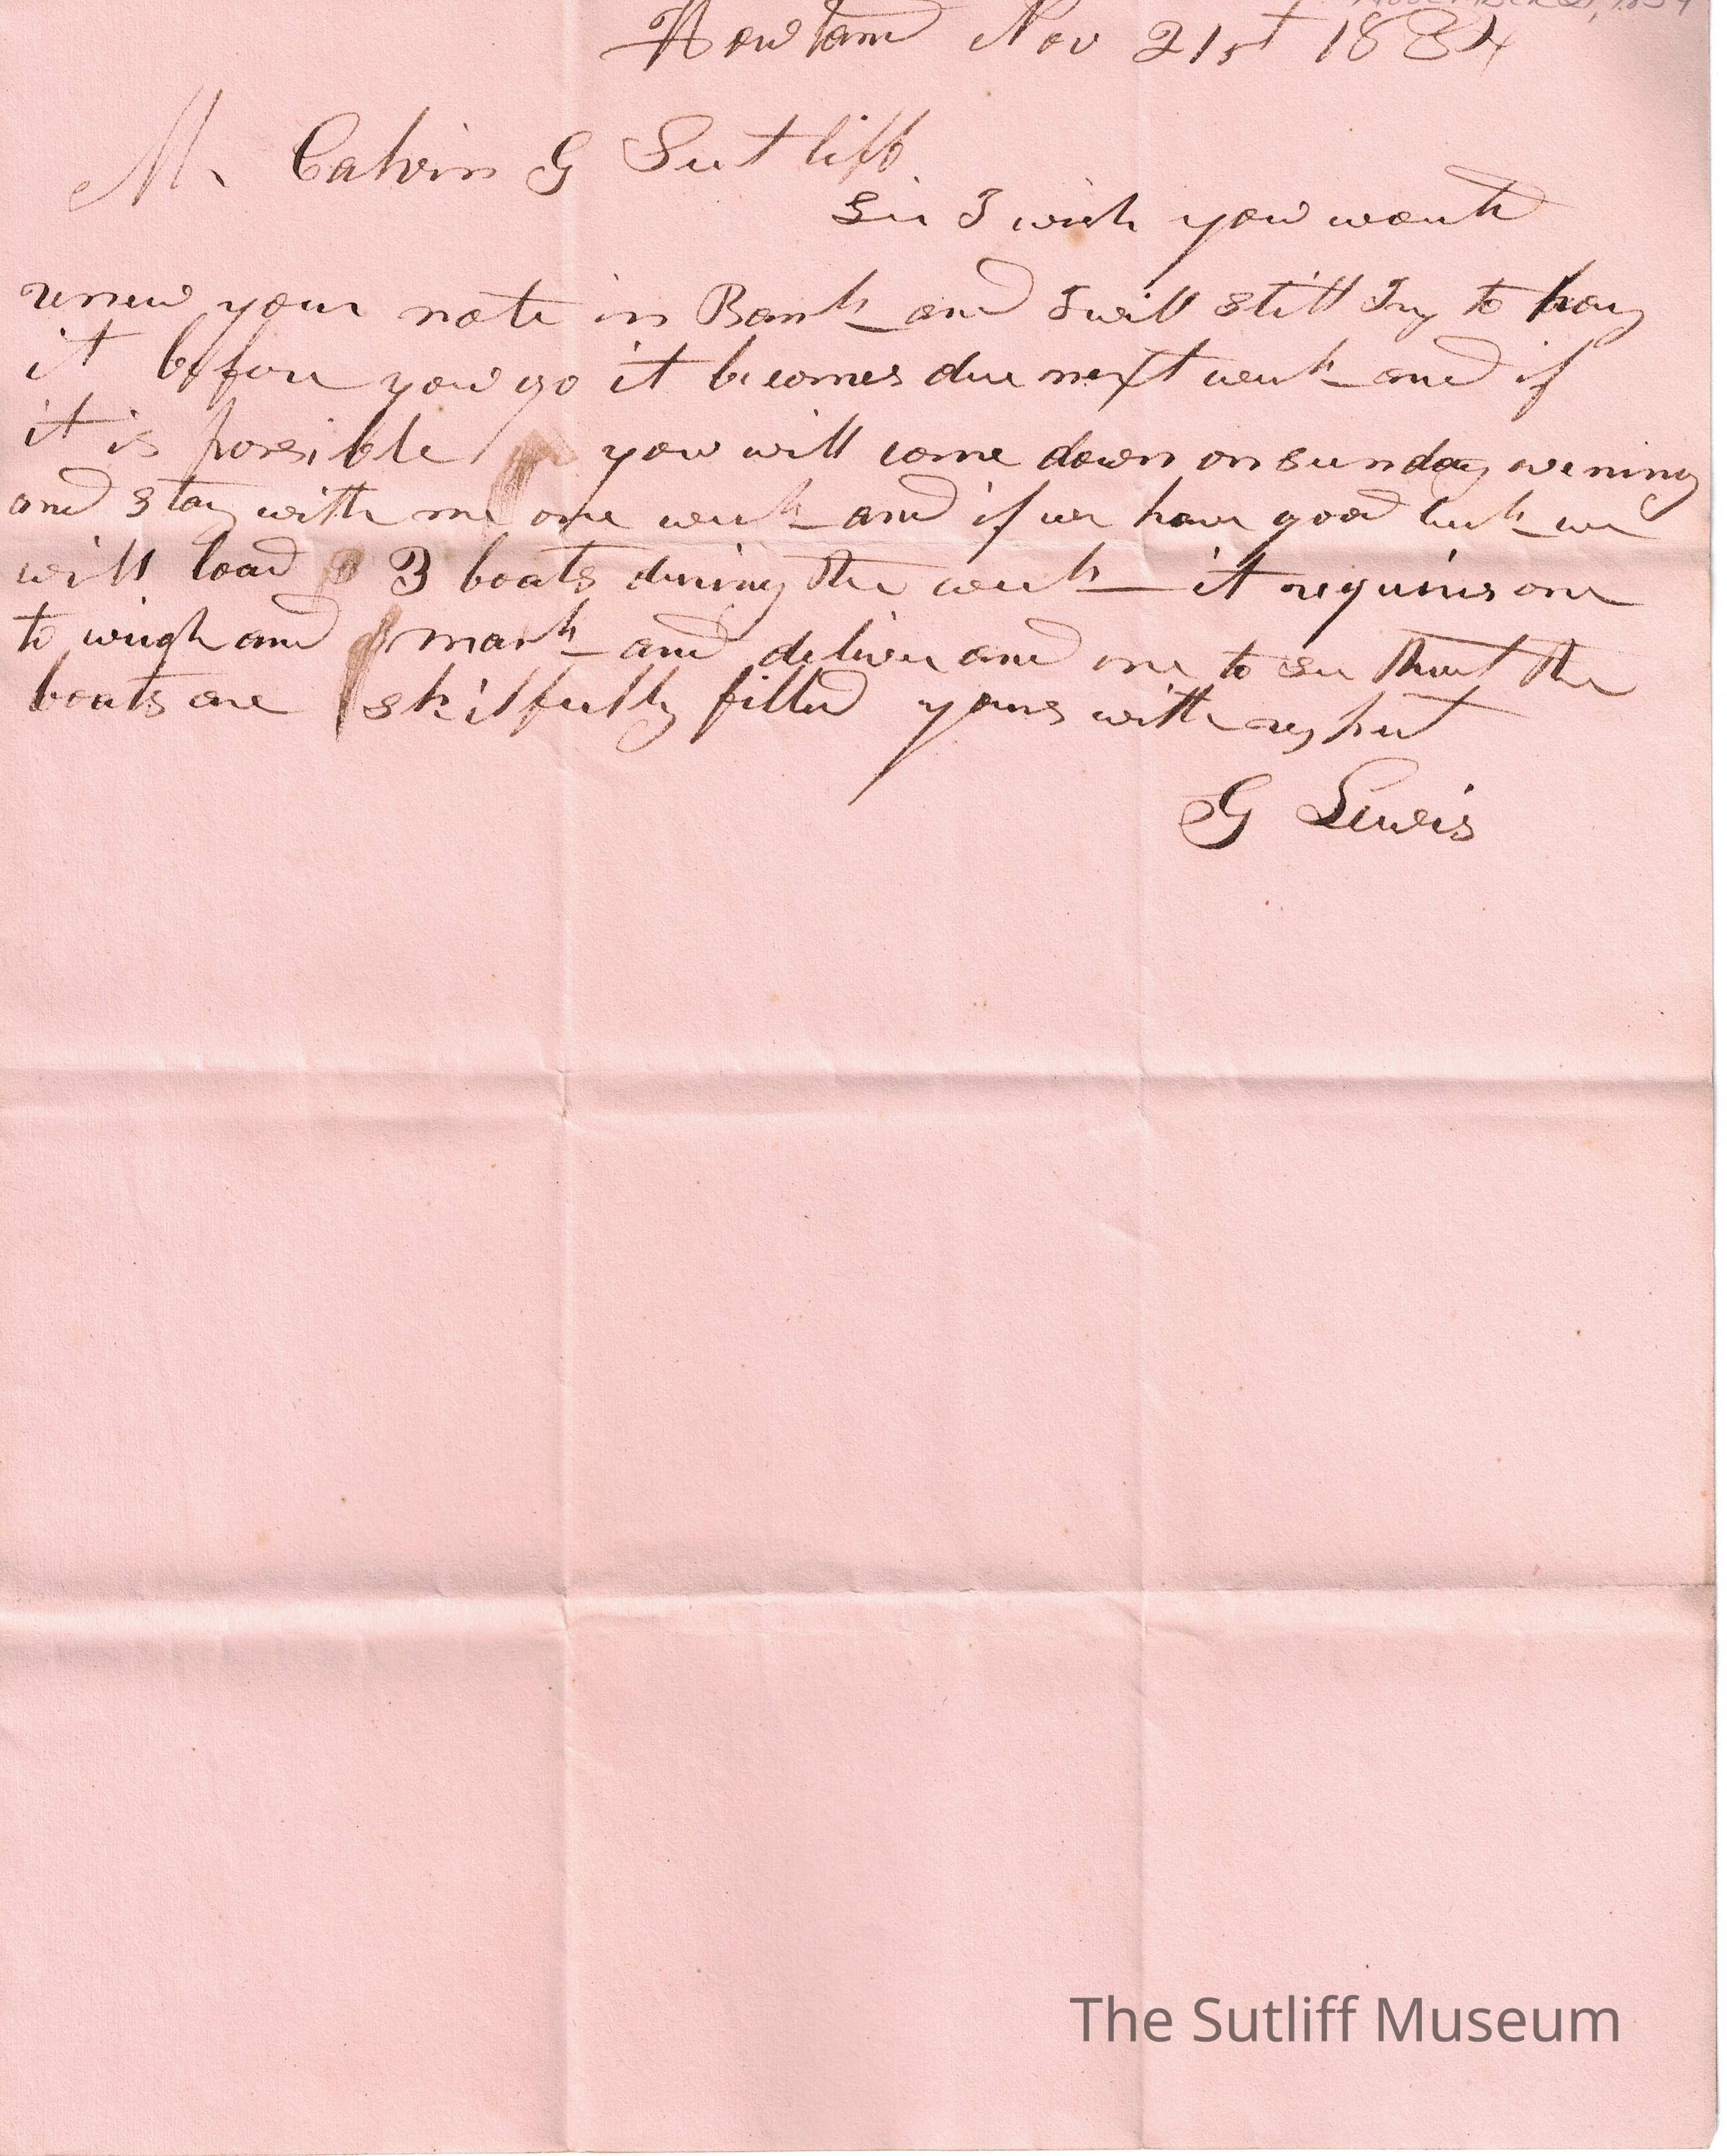 NOVEMBER 21, 1854
Howland Nov 21st 1854
Mr Calvin G Sutliff
Sir I wish you would
renew your note in Bank and I will still Try to pay
it before you go it becomes due next week and if
it is possible you will come down on sunday evening
and stay with me one week and if we have good luck we
will load 3 boats during the week it requires one
to weigh and mark and deliver and one to see that the
boats are skilfully filled yours with respect
G Lewis
The Sutliff Museum